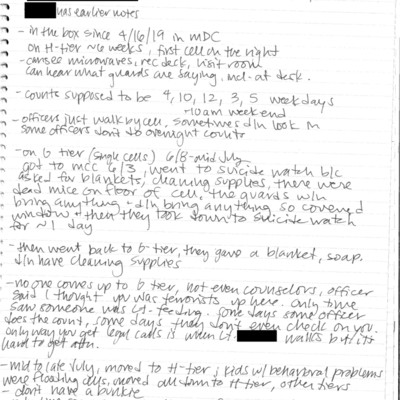 has earlier notes
- in the box since 4/16/19 in MDC
on H-tier ~6 weeks, first cell on the right
- can see microwaves, rec deck, visit room
can hear what guards are saying, incl. at desk.
- counts supposed to be 4, 10, 12, 3, 5 weekdays
- 10am weekend
- officers just walk by cell, sometimes d/n look in
some officers don't do overnight counts
- on G tier (single cells) 6/8-mid July
got to MCC 6/3, went to suicide watch b/c
asked for blankets, cleaning supplies, there were
dead mice on floor of cell, the guards w/n
bring anything + d/n bring anything so covered
window + then they took down to suicide watch
for ~1 day
- then went back to G-tier, they gave a blanket, soap.
d/n have cleaning supplies
- no one comes up to G tier, not even counselors, officer
said I thought up was terrorists up here. only time
saw someone was Lt. feeding. some days some officer
does the count, some days they don't even check on you.
only way you get legal calls is when Lt. walks but it's
hard to get often.
- mid to late July, moved to H-tier; kids w/ behavioral problems
were flooding cells, moved all down to H tier, other tiers
- don't have a bunkie